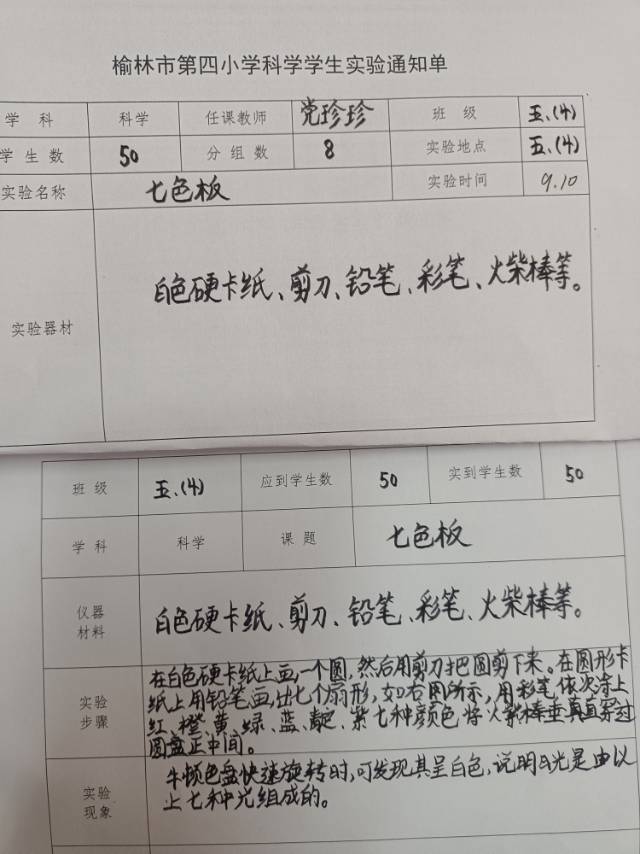 榆林市第四小学科学学生实验通知单
学 科 科学 任课教师 党珍珍 班 级 五.(4)
学生数 50 分组数 8 实验地点 五.(4)
实验名称 七色板 实验时间 9.10
实验器材 白色硬卡纸、剪刀、铅笔、彩笔、火柴棒等。
班 级 五.(4) 应到学生数 50 实到学生数 50
学 科 科学 课 题 七色板
仪器材料 白色硬卡纸、剪刀、铅笔、彩笔、火柴棒等。
实验步骤 在白色硬卡纸上画一个圆,然后用剪刀把圆剪下来。在圆形卡
纸上用铅笔画出七个扇形,如右图所示,用彩笔依次涂上
红、橙、黄、绿、蓝、靛、紫七种颜色将火柴棒垂直穿过
圆盘正中间。
实验现象 牛顿色盘快速旋转时,可发现其呈白色,说明白光是由以
上七种光组成的。